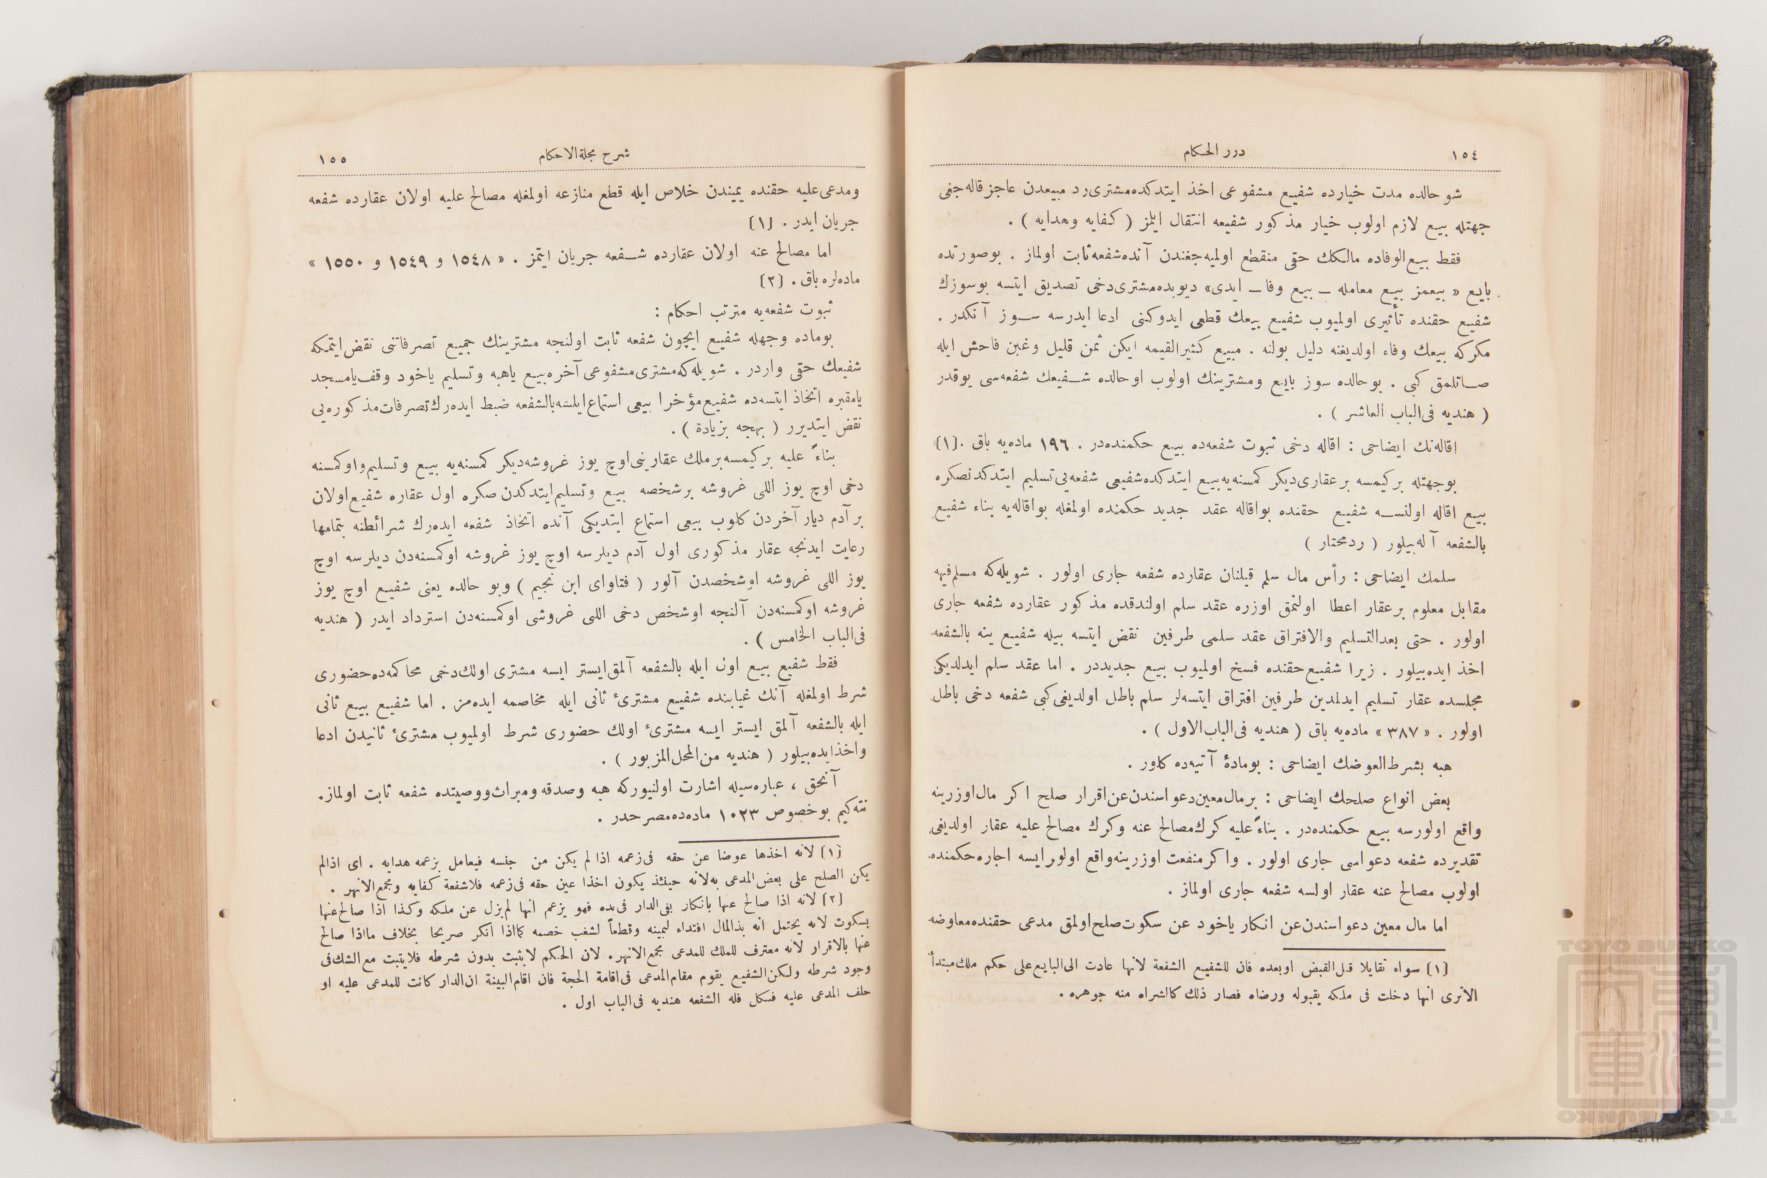 ١٥٤
درر الحكام
شو حالده مدت خيارده شفيع مشفوعى اخذ ايتدكده مشترى رد مبيعدن عاجز قاله جغى
جهتله بيع لازم اولوب خيار مذكور شفيعه انتقال ايلمز ( كفايه وهدايه ) .
فقط بيع الوفاده مالكك حقى منقطع اولميه جغندن آنده شفعه ثابت اولماز . بوصورتده
بايع « بيعمز بيع معامله ـ بيع وفا ـ ايدى» ديوبده مشترى دخى تصديق ايتسه بوسوزك
شفيع حقنده تأثيرى اولميوب شفيع بيعك قطعى ايدوكنى ادعا ايدرسه سوز آنكدر .
مكركه بيعك وفاء اولديغنه دليل بولنه . مبيع كثير القيمه ايكن ثمن قليل وغبن فاحش ايله
صاتلمق كبى . بوحالده سوز بايع ومشترينك اولوب اوحالده شفيعك شفعه سى يوقدر
( هنديه فى الباب العاشر ) .
اقاله نك ايضاحى : اقاله دخى ثبوت شفعه ده بيع حكمنده در . ١٩٦ ماده يه باق .[١]
بوجهتله بركيمسه بر عقارى ديكر كمسنه يه بيع ايتدكده شفيعى شفعه يى تسليم ايتدكدنصكره
بيع اقاله اولنسه شفيع حقنده بواقاله عقد جديد حكمنده اولمغله بواقاله يه بناء شفيع
بالشفعه آله بيلور ( ردمختار )
سلمك ايضاحى : رأس مال سلم قيلنان عقارده شفعه جارى اولور . شويله كه مسلم فيه
مقابل معلوم بر عقار اعطا اولنمق اوزره عقد سلم اولندقده مذكور عقارده شفعه جارى
اولور . حتى بعدالتسليم والافتراق عقد سلمى طرفين نقض ايتسه بيله شفيع ينه بالشفعه
اخذ ايده بيلور . زيرا شفيع حقنده فسخ اولميوب بيع جديددر . اما عقد سلم ايدلديكى
مجلسده عقار تسليم ايدلمدين طرفين افتراق ايتسه لر سلم باطل اولديغى كبى شفعه دخى باطل
اولور . « ٣٨٧ » ماده يه باق ( هنديه فى الباب الاول ) .
هبه بشرط العوضك ايضاحى : بومادۀ آتيه ده كلور .
بعض انواع صلحك ايضاحى : بر مال معين دعواسندن عن اقرار صلح اكر مال اوزرينه
واقع اولورسه بيع حكمنده در . بناءً عليه كرك مصالح عنه وكرك مصالح عليه عقار اولديغى
تقديرده شفعه دعواسى جارى اولور . واكر منفعت اوزرينه واقع اولور ايسه اجاره حكمنده
اولوب مصالح عنه عقار اولسه شفعه جارى اولماز .
اما مال معين دعواسندن عن انكار ياخود عن سكوت صلح اولمق مدعى حقنده معاوضه
[١] سواء تقايلا قبل القبض اوبعده فان للشفيع الشفعة لانها عادت الى البايع على حكم ملك مبتدأ
الاترى انها دخلت فى ملكه بقبوله ورضاه فصار ذلك كالشراء منه جوهره .
شرح مجلة الاحكام
١٥٥
ومدعى عليه حقنده يميندن خلاص ايله قطع منازعه اولمغله مصالح عليه اولان عقارده شفعه
جريان ايدر . [١]
اما مصالح عنه اولان عقارده شفعه جريان ايتمز . « ١٥٤٨ و ١٥٤٩ و ١٥٥٠ »
ماده لره باق . [٢]
ثبوت شفعه يه مترتب احكام :
بوماده وجهله شفيع ايچون شفعه ثابت اولنجه مشترينك جميع تصرفاتنى نقض ايتمكه
شفيعك حقى واردر . شويله كه مشترى مشفوعى آخره بيع ياهبه وتسليم ياخود وقف يامسجد
يامقبره اتخاذ ايتسه ده شفيع مؤخرا بيعى استماع ايلسه بالشفعه ضبط ايده رك تصرفات مذكوره يى
نقض ايتديرر ( بهجه بزيادة ) .
بناءً عليه بركيمسه بر ملك عقارينى اوچ يوز غروشه ديكر كمسنه يه بيع وتسليم و اوكمسنه
دخى اوچ يوز اللى غروشه بر شخصه بيع وتسليم ايتدكدن صكره اول عقاره شفيع اولان
بر آدم ديار آخردن كلوب بيعى استماع ايتديكى آنده اتخاذ شفعه ايده رك شرائطنه بتمامها
رعايت ايدنجه عقار مذكورى اول آدم ديلرسه اوچ يوز غروشه اوكمسنه دن ديلرسه اوچ
يوز اللى غروشه اوشخصدن آلور ( فتاواى ابن نجيم ) وبو حالده يعنى شفيع اوچ يوز
غروشه اوكمسنه دن آلنجه اوشخص دخى اللى غروشى اوكمسنه دن استرداد ايدر ( هنديه
فى الباب الخامس ) .
فقط شفيع بيع اول ايله بالشفعه آلمق ايستر ايسه مشترى اولك دخى محاكمه ده حضورى
شرط اولمغله آنك غيابنده شفيع مشترئ ثانى ايله مخاصمه ايده مز . اما شفيع بيع ثانى
ايله بالشفعه آلمق ايستر ايسه مشترئ اولك حضورى شرط اولميوب مشترئ ثانيدن ادعا
واخذ ايده بيلور ( هنديه من المحل المزبور ) .
آنجق ، عباره سيله اشارت اولنيوركه هبه وصدقه وميراث ووصيتده شفعه ثابت اولماز.
نته كيم بوخصوص ١٠٢٣ ماده ده مصرحدر .
[١] لانه اخذها عوضا عن حقه فى زعمه اذا لم يكن من جنسه فيعامل بزعمه هدايه . اى اذالم
يكن الصلح على بعض المدعى به لانه حينئذ يكون اخذا عين حقه فى زعمه فلاشفعة كفايه ومجمع الانهر .
[٢] لانه اذا صالح عنها بانكار بقى الدار فى يده فهو يزعم انها لم يزل عن ملكه وكذا اذا صالح عنها
بسكوت لانه يحتمل انه بذالمال افتداء ليمينه وقطعاً لشغب خصمه كمااذا انكر صريحا بخلاف مااذا صالح
عنها بالاقرار لانه معترف للملك للمدعى مجمع الانهر. لان الحكم لايثبت بدون شرطه فلايثبت مع الشك فى
وجود شرطه ولكن الشفيع يقوم مقام المدعى فى اقامة الحجة فان اقام البينة ان الدار كانت للمدعى عليه او
حلف المدعى عليه فنكل فله الشفعه هنديه فى الباب اول .
TOYO BUNKO